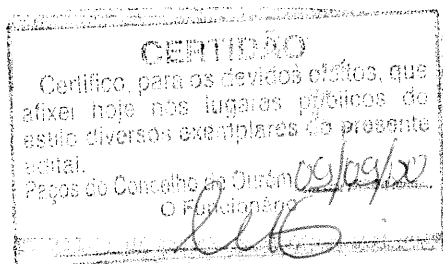 CERTIDÃO
Certifico, para os devidos efeitos, que
afixei hoje nos lugares públicos do
estilo diversos exemplares do presente
edital.
Paços do Concelho de Ourém 09/09/
O Funcionário